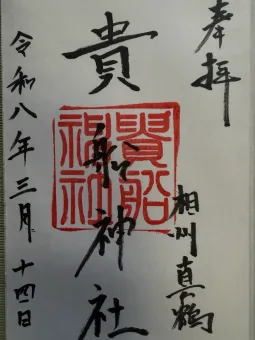 奉拝
相州真鶴
貴船神社
貴船神社
令和八年三月十四日